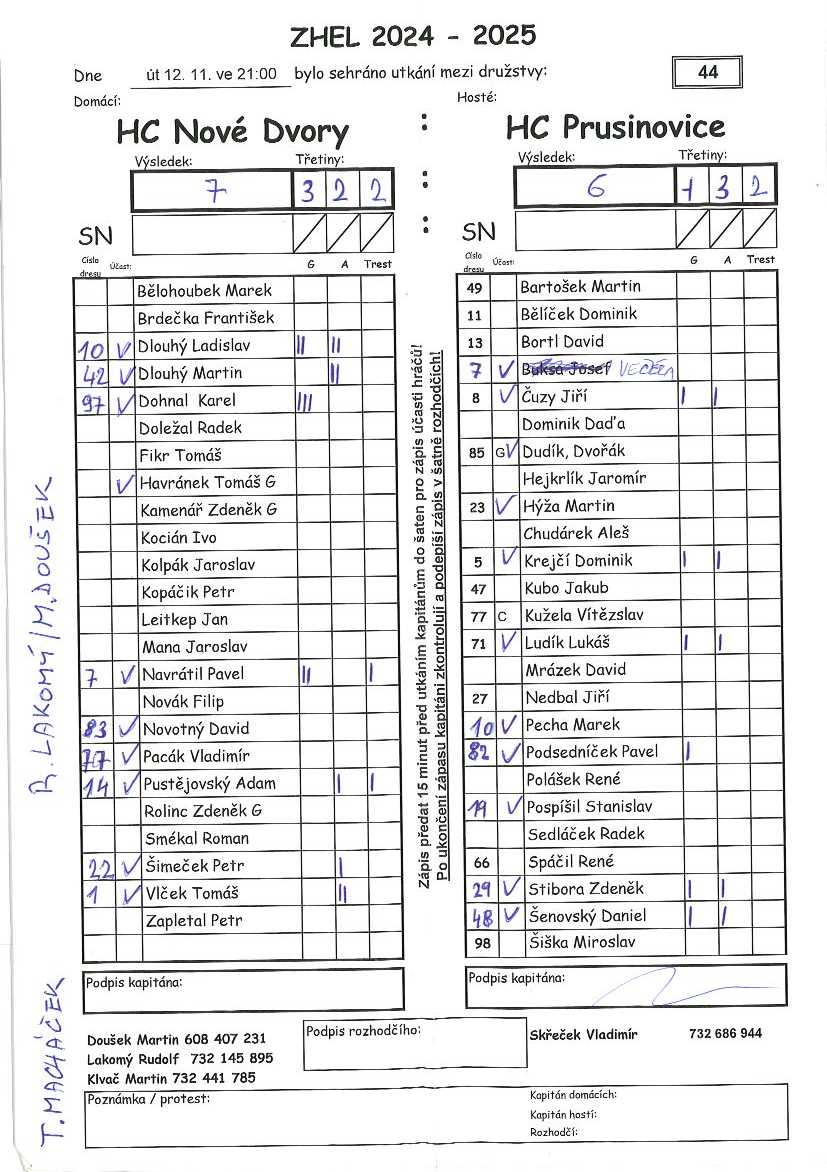 ZHEL 2024 - 2025
Dne út 12. 11. ve 21:00 bylo sehráno utkání mezi družstvy: 44
Domácí: Hosté:
HC Nové Dvory : HC Prusinovice
Výsledek: Třetiny: Výsledek: Třetiny:
7 3 2 2 : 6 1 3 2
SN : SN
Číslo dresu Účast: G A Trest Číslo dresu Účast: G A Trest
Bělohoubek Marek
Brdečka František
10 V Dlouhý Ladislav II II
42 V Dlouhý Martin II
97 V Dohnal Karel III
Doležal Radek
Fikr Tomáš
V Havránek Tomáš G
Kamenář Zdeněk G
Kocián Ivo
Kolpák Jaroslav
Kopáčik Petr
Leitkep Jan
Mana Jaroslav
7 V Navrátil Pavel II I
Novák Filip
83 V Novotný David
77 V Pacák Vladimír
14 V Pustějovský Adam I I
Rolinc Zdeněk G
Smékal Roman
22 V Šimeček Petr I
1 V Vlček Tomáš II
Zapletal Petr
49 Bartošek Martin
11 Bělíček Dominik
13 Bortl David
7 V Buksa Josef
8 V Čuzy Jiří I I
Dominik Daďa
85 G V Dudík, Dvořák
Hejkrlík Jaromír
23 V Hýža Martin
Chudárek Aleš
5 V Krejčí Dominik I I
47 Kubo Jakub
77 C Kužela Vítězslav
71 V Ludík Lukáš I I
Mrázek David
27 Nedbal Jiří
10 V Pecha Marek
82 V Podsedníček Pavel I
Polášek René
19 V Pospíšil Stanislav
Sedláček Radek
66 Spáčil René
29 V Stibora Zdeněk I I
48 V Šenovský Daniel I I
98 Šiška Miroslav
Zápis předat 15 minut před utkáním kapitánům do šaten pro zápis účasti hráčů!
Po ukončení zápasu kapitáni zkontrolují a podepíší zápis v šatně rozhodčích!
R. LAKOMÝ / M. DOUŠEK
T. MACHÁČEK
Podpis kapitána: Podpis kapitána:
Doušek Martin 608 407 231
Lakomý Rudolf 732 145 895
Klvač Martin 732 441 785
Podpis rozhodčího:
Skřeček Vladimír 732 686 944
Poznámka / protest:
Kapitán domácích:
Kapitán hostí:
Rozhodčí: